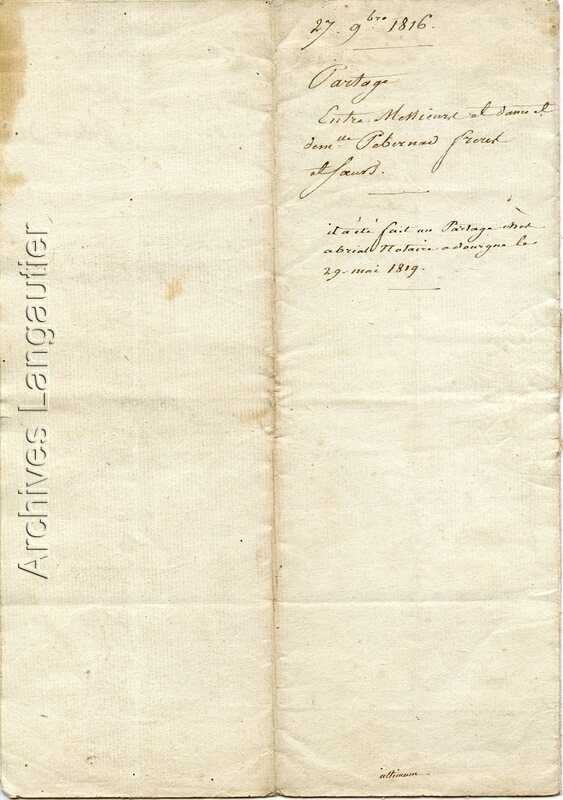 27. 9bre 1816.
Partage
Entre Messieurs et dame et
demlle Pebernad freres
et Sœurs.
il a été fait un Partage chez
abrial Notaire a dourgne le
29. mai 1819.
ultimum
Archives Langautier